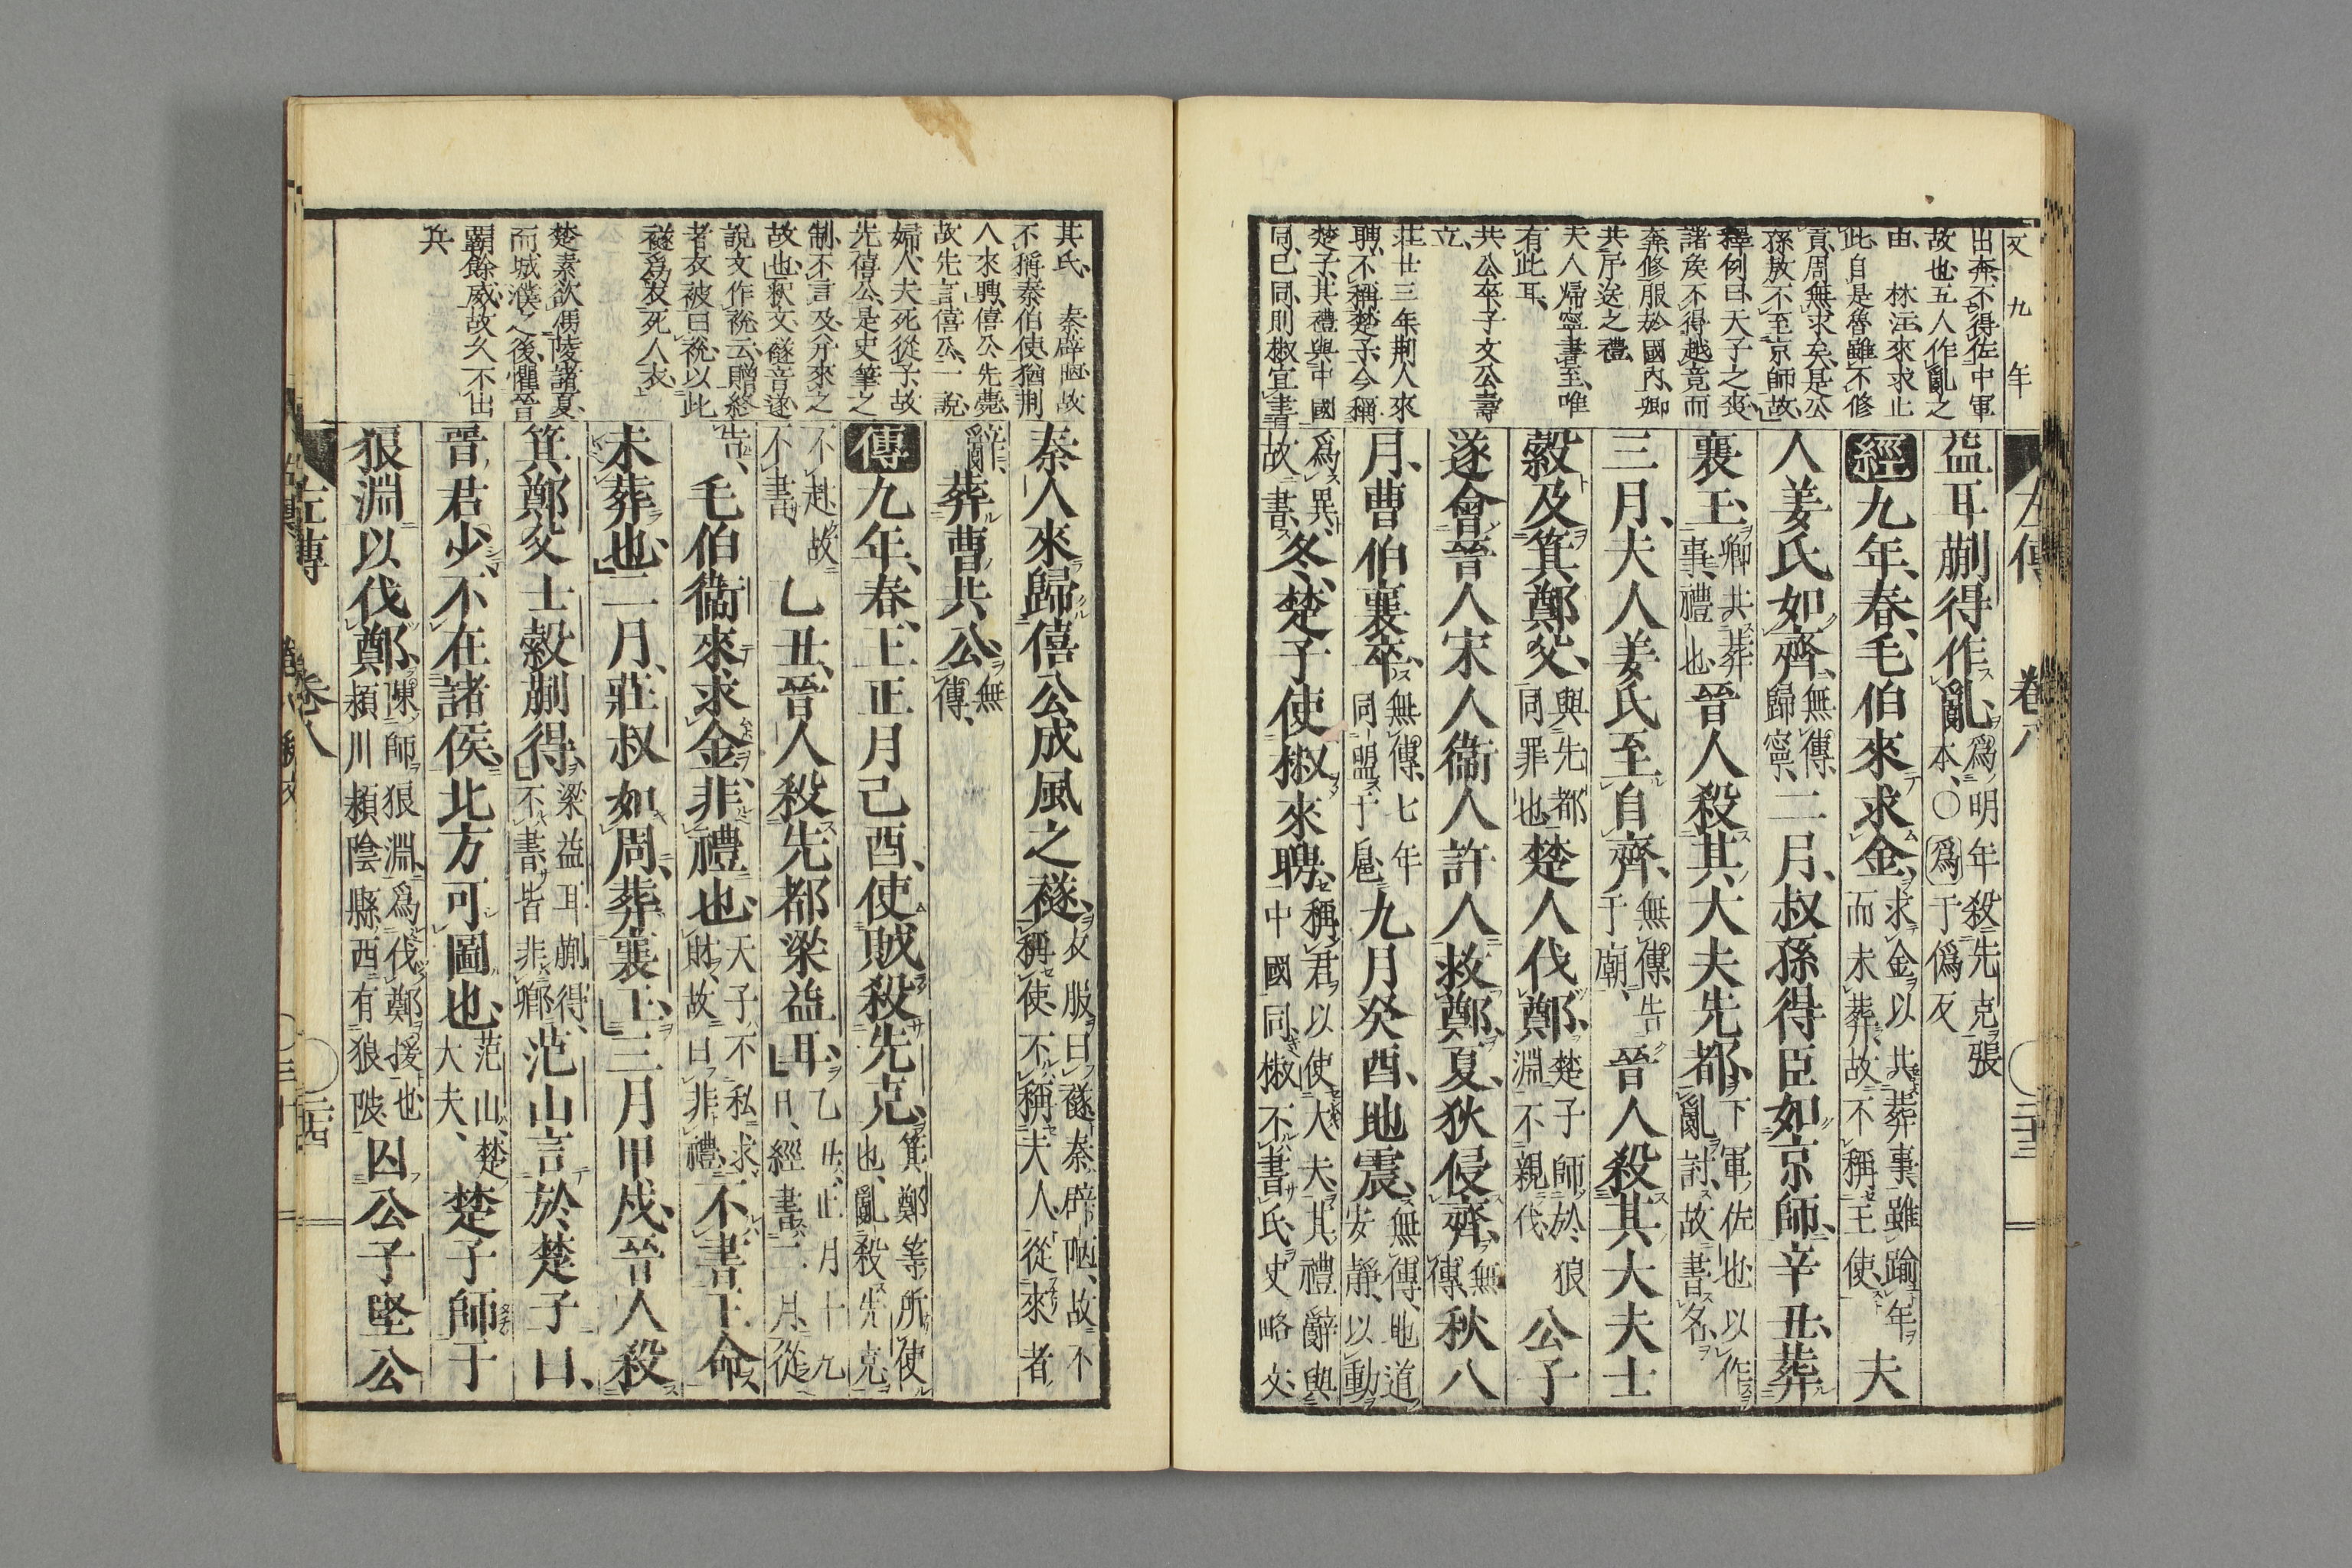 文　九　年
出奔、不得佐中軍
故也、五人作亂之
由、　林注、來求止
此、自是魯雖不修
貢、周無求矣、是公
孫敖不至京師故、
釋例曰、天子之喪
諸矦不得越竟而
奔、修服於國内、卿
共序送之禮
夫人歸寧書至、唯
有此耳、
共公卒、子文公壽
立、
莊廿三年、荆人來
聘、不稱楚子、今稱
楚子、其禮與中國
同、已同、則椒宜書
左傳　卷八　〇二十三
益耳蒯得作亂、爲明年殺先克張本、〇爲于僞反
經九年、春、毛伯來求金、求金以共葬事、雖踰年而未葬、故不稱王使、夫
人姜氏如齊、無傳、歸寧、二月、叔孫得臣如京師、辛丑、葬
襄王、卿共葬事、禮也、晉人殺其大夫先都、下軍佐也、以作亂討、故書名、
三月、夫人姜氏至自齊、無傳、告于廟、晉人殺其大夫士
縠及箕鄭父、與先都同罪也、楚人伐鄭、楚子師於狼淵、不親伐、公子
遂會晉人宋人衞人許人救鄭、夏、狄侵齊、無傳、秋八
月、曹伯襄卒、無傳、七年同盟于扈、九月癸酉、地震、無傳、地道安靜、以動
爲異、故書、冬、楚子使椒來聘、稱君以使大夫、其禮辭與中國同、椒不書氏、史略文、
其氏、　秦辟陋、故
不稱秦伯使、猶荆
人來聘、僖公先薨、
故先言僖公、一說、
婦人夫死從子、故
先僖公、是史筆之
制、不言及、并來之
故也、釈文、襚音遂、
說文作祱云、贈終
者衣被曰祱、以此
襚爲衣死人衣、
楚素欲傷陵諸夏、
而城濮之後、懼晉
覇餘威、故久不出
兵
秦人來歸僖公成風之襚、衣服曰襚、秦辟陋、故不稱使、不稱夫人、從來者
辭、葬曹共公、無傳、
傳九年、春、王正月己酉、使賊殺先克、箕鄭等所使也、亂殺先克
不赴、故不書、乙丑、晉人殺先都梁益耳、乙丑、正月十九日、經書二月、從
告、毛伯衞來求金、非禮也、天子不私求財、故曰非禮、不書王命、
未葬也、二月、莊叔如周、葬襄王、三月甲戌、晉人殺
箕鄭父士縠蒯得、梁益耳蒯得、不書、皆非卿、范山言於楚子曰、
晉君少、不在諸侯、北方可圖也、范山、楚大夫、楚子師于
狼淵以伐鄭、陳師狼淵、爲伐鄭援也、潁川潁陰縣西有狼陂、囚公子堅公
左傳　卷八　〇二十四